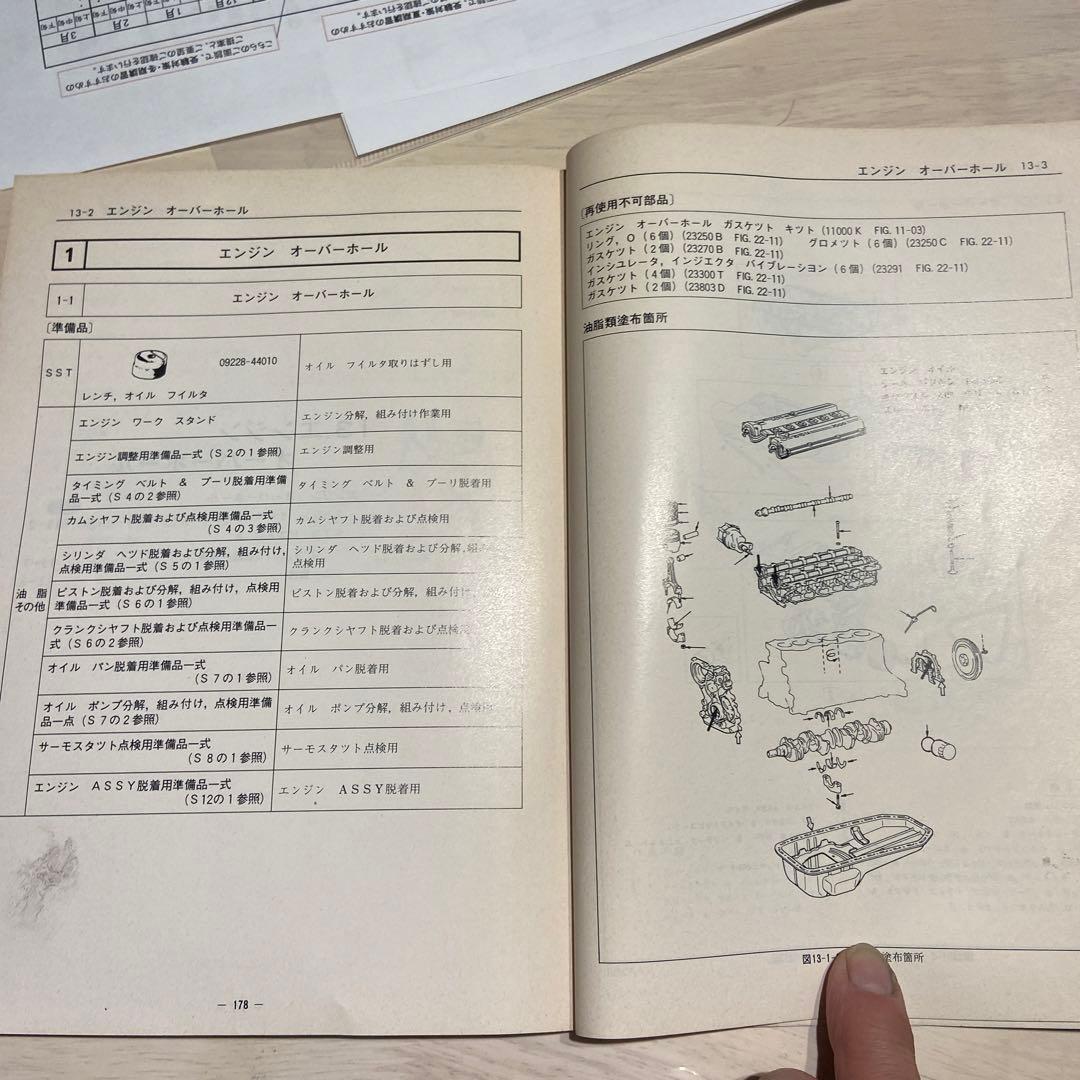 13-2 エンジン オーバーホール
1 エンジン オーバーホール
1-1 エンジン オーバーホール
〔準備品〕
SST
09228-44010
レンチ，オイル フイルタ
オイル フイルタ取りはずし用
油 脂
その他
エンジン ワーク スタンド
エンジン分解，組み付け作業用
エンジン調整用準備品一式（S2の1参照）
エンジン調整用
タイミング ベルト & プーリ脱着用準備
品一式（S4の2参照）
タイミング ベルト & プーリ脱着用
カムシヤフト脱着および点検用準備品一式
（S4の3参照）
カムシヤフト脱着および点検用
シリンダ ヘツド脱着および分解，組み付け，
点検用準備品一式（S5の1参照）
シリンダ ヘツド脱着および分解，組み
点検用
ピストン脱着および分解，組み付け，点検用
準備品一式（S6の1参照）
ピストン脱着および分解，組み付け，
クランクシヤフト脱着および点検用準備品一
式（S6の2参照）
クランクシヤフト脱着および点検用
オイル パン脱着用準備品一式
（S7の1参照）
オイル パン脱着用
オイル ポンプ分解，組み付け，点検用準備
品一点（S7の2参照）
オイル ポンプ分解，組み付け，点検
サーモスタツト点検用準備品一式
（S8の1参照）
サーモスタツト点検用
エンジン ASSY脱着用準備品一式
（S12の1参照）
エンジン ASSY脱着用
— 178 —
エンジン オーバーホール 13-3
〔再使用不可部品〕
エンジン オーバーホール ガスケツト キツト（11000K FIG. 11-03）
リング，O（6個）（23250B FIG. 22-11） グロメツト（6個）（23250C FIG. 22-11）
ガスケツト（2個）（23270B FIG. 22-11）
インシユレータ，インジエクタ バイブレーシヨン（6個）（23291 FIG. 22-11）
ガスケツト（4個）（23300T FIG. 22-11）
ガスケツト（2個）（23803D FIG. 22-11）
油脂類塗布箇所
図13-1- 塗布箇所
3月
2月
1月
こちらのご面談で、受験対策・冬期講習のおすすめの
ご提案と、ご要望のご確認を行います。